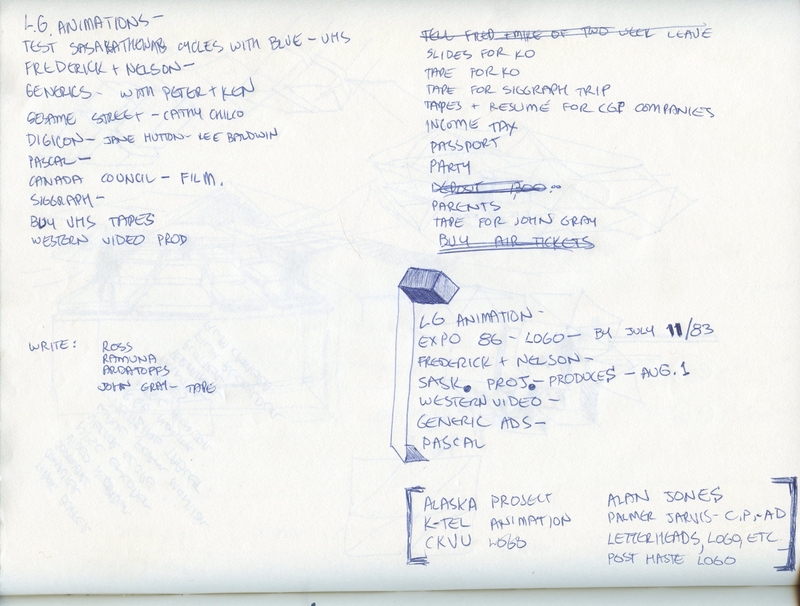 L.G. ANIMATIONS -
TEST SASAKATHEWAB CYCLES WITH BLUE - VHS
FREDERICK + NELSON -
GENERICS - WITH PETER + KEN
SESAME STREET - CATHY CHILCO
DIGICON - JANE HUTTON - LEE BALDWIN
PASCAL -
CANADA COUNCIL - FILM.
SIGGRAPH -
BUY VHS TAPES
WESTERN VIDEO PROD
WRITE: ROSS
RAMUNA
ARDATOFFS
JOHN GRAY - TAPE
TELL FRED + MIKE OF TWO WEEK LEAVE
SLIDES FOR KO
TAPE FOR KO
TAPE FOR SIGGRAPH TRIP
TAPES + RESUMÉ FOR CGI COMPANIES
INCOME TAX
PASSPORT
PARTY
DEPOSIT 1,300.--
PARENTS
TAPE FOR JOHN GRAY
BUY AIR TICKETS
LG ANIMATION -
EXPO 86 - LOGO - BY JULY 11/83
FREDERICK + NELSON -
SATSK. PROJ. - PRODUCES - AUG. 1
WESTERN VIDEO -
GENERIC ADS -
PASCAL
ALASKA PROJECT
K-TEL ANIMATION
CKVU LOGO
ALAN JONES
PALMER JARVIS - C.P. - AD
LETTERHEADS, LOGO, ETC.
POST HASTE LOGO